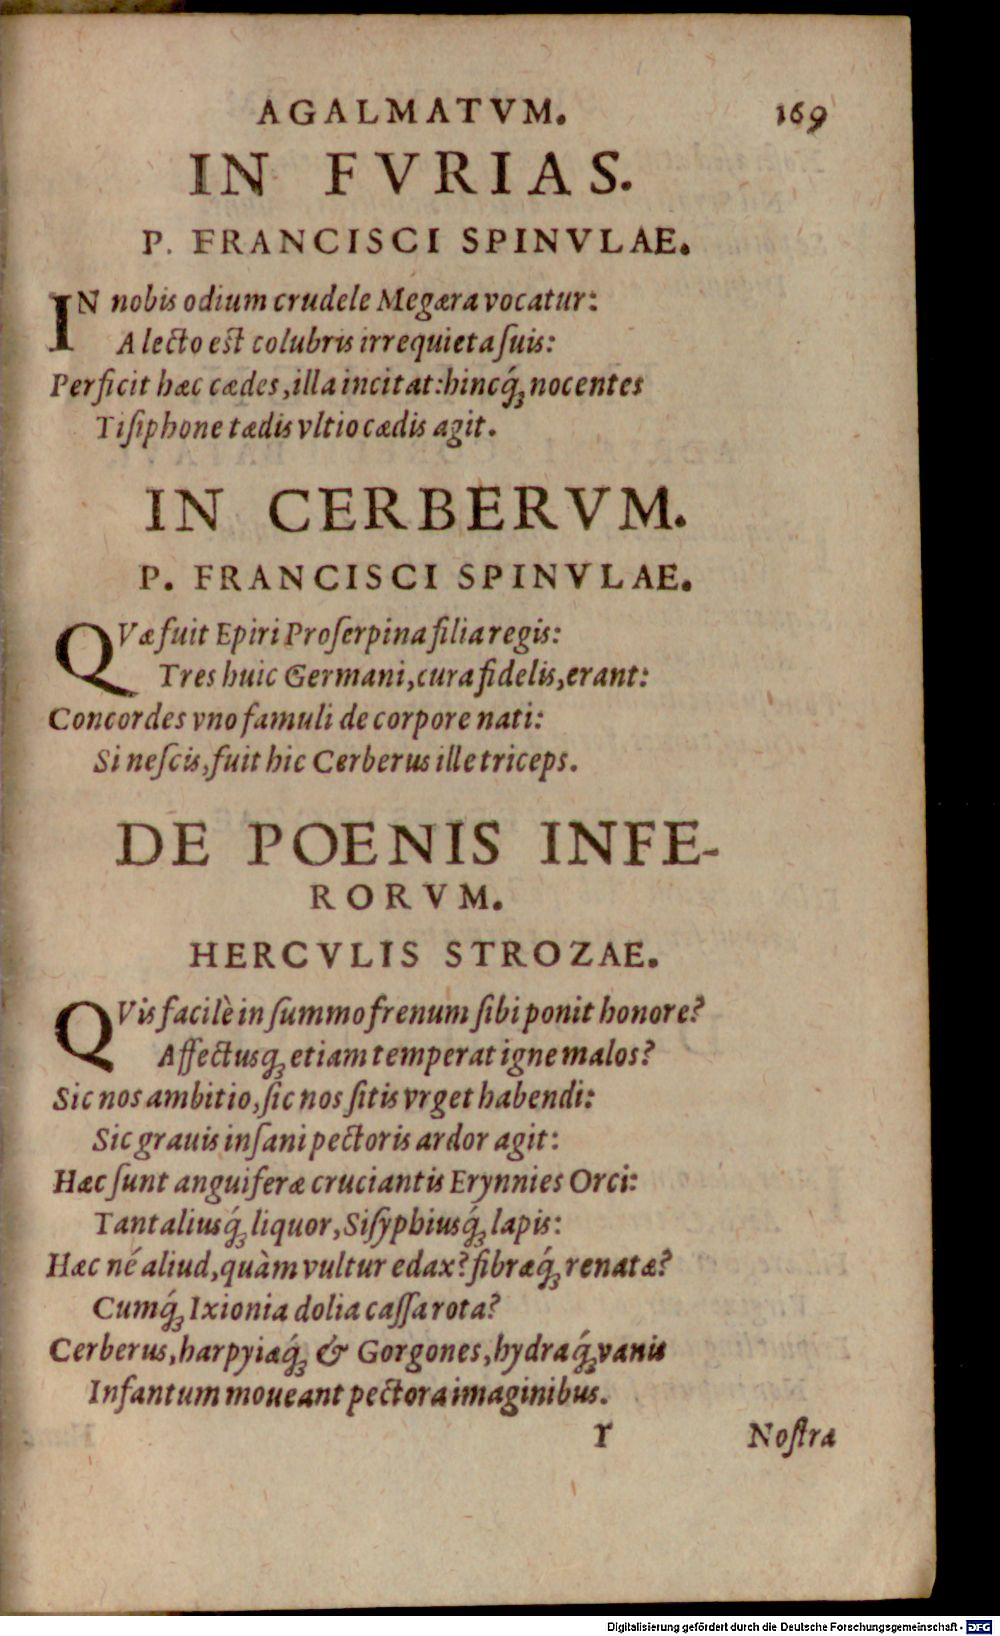 AGALMATVM. 169
IN FVRIAS.
P. FRANCISCI SPINVLAE.
IN nobis odium crudele Megæra vocatur:
Alecto est colubris irrequieta ſuis:
Perficit hæc cædes, illa incitat: hincq́ꝫ nocentes
Tiſiphone tædis vltio cædis agit.
IN CERBERVM.
P. FRANCISCI SPINVLAE.
QVæ fuit Epiri Proſerpina filia regis:
Tres huic Germani, cura fidelis, erant:
Concordes vno famuli de corpore nati:
Si neſcis, fuit hic Cerberus ille triceps.
DE POENIS INFE-
RORVM.
HERCVLIS STROZAE.
QVis facilè in ſummo frenum ſibi ponit honore?
Affectusqꝫ etiam temperat igne malos?
Sic nos ambitio, ſic nos ſitis vrget habendi:
Sic grauis inſani pectoris ardor agit:
Hæc ſunt anguiferæ cruciantis Erynnies Orci:
Tantaliusq́ꝫ liquor, Siſyphiusq́ꝫ lapis:
Hæc né aliud, quàm vultur edax? fibræq́ꝫ renatæ?
Cumq́ꝫ Ixionia dolia caſſa rota?
Cerberus, harpyiæq́ꝫ & Gorgones, hydraq́ꝫ vanis
Infantum moueant pectora imaginibus.
Y Noſtra
Digitalisierung gefördert durch die Deutsche Forschungsgemeinschaft - DFG